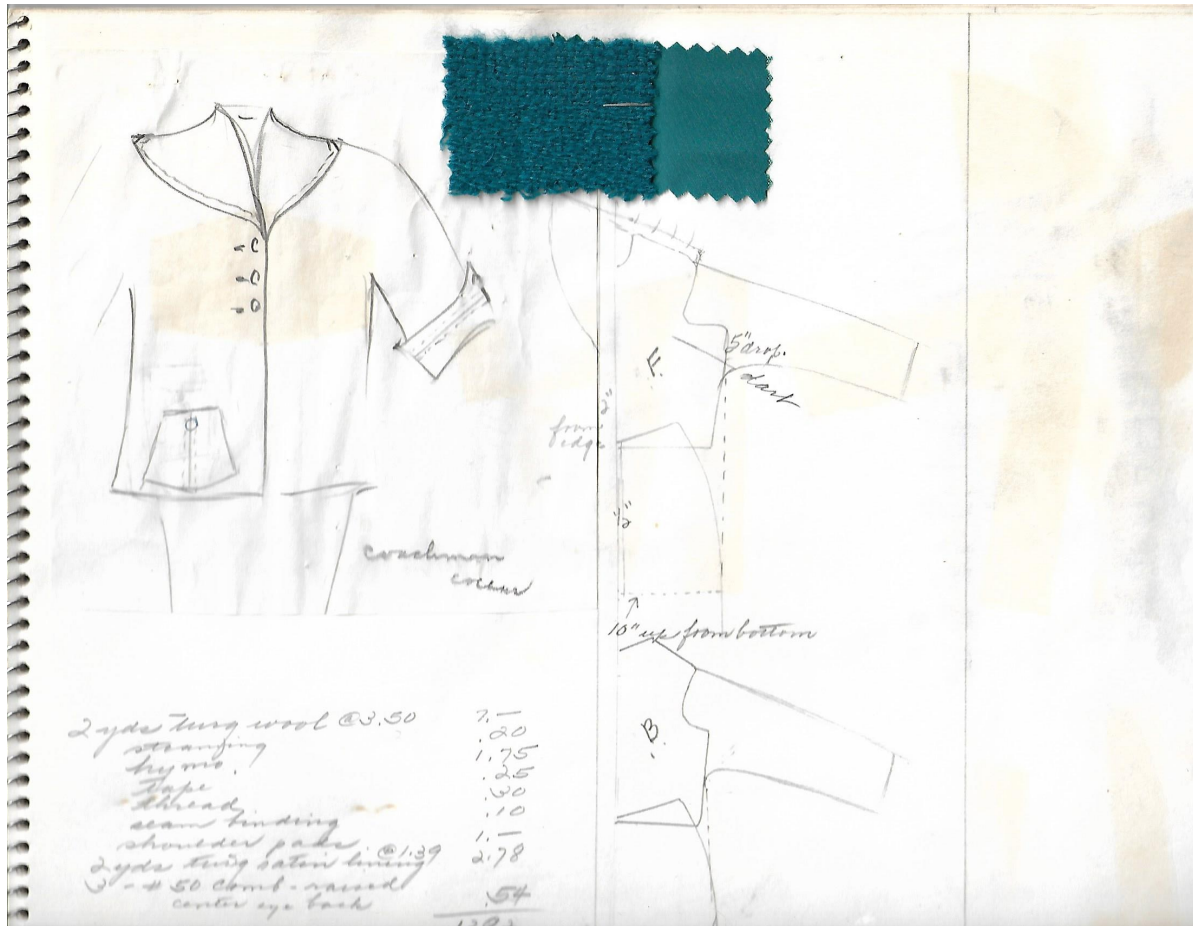 coachman
collar
F.
5" drop.
dart
2"
from
edge
½"
10" up from bottom
B.
2 yds turq wool @3.50 7.—
steaming .20
hymo. 1.75
tape .25
thread .30
seam binding .10
shoulder pads 1.—
2 yds turq satin lining @1.39 2.78
3 - # 50 comb-raised
center eye back .54